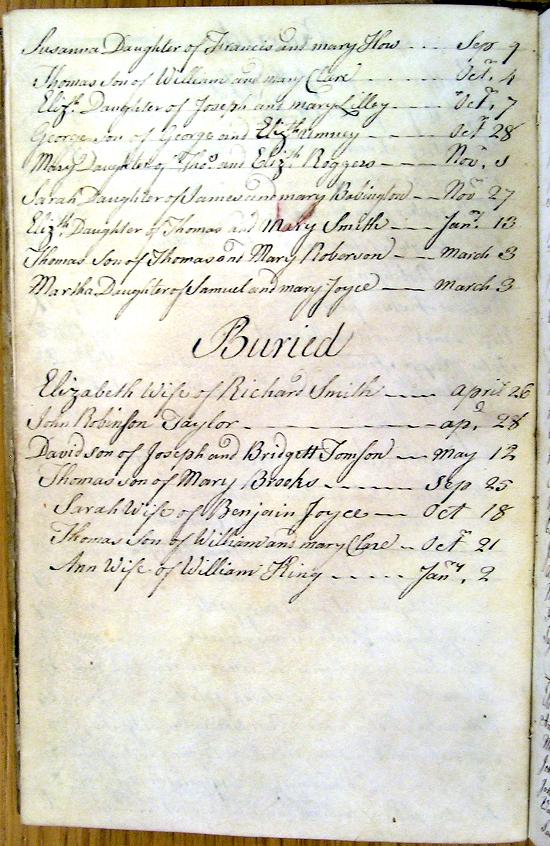 Susanna Daughter of Francis and mary How .... Sep 9
Thomas son of William and mary Clare ...... Octr. 4
Elizh. Daughter of Joseph and mary Lilley —— Octr. 7
George son of George and Elizth — Octr 28
Mary Daughter of Thos. and Elizth. Roggers —— Novr. 1
Sarah Daughter of James and mary Bavington — Novr 27
Elizth Daughter of Thomas and Mary Smith —— Jany. 13
Thomas Son of Thomas and Mary Roberson — March 3
Martha Daughter of Samuel and mary Joyce — march 3
Buried
Elizabeth Wife of Richard Smith —— april 26
John Robinson Taylor ———— ap. 28
David son of Joseph and Bridgett Tomson — may 12
Thomas son of Mary Brooks ———— Sep 25
Sarah Wife of Benjain Joyce — Oct 18
Thomas Son of William and mary Clare — Octr 21
Ann Wife of William King ———— Jany. 2